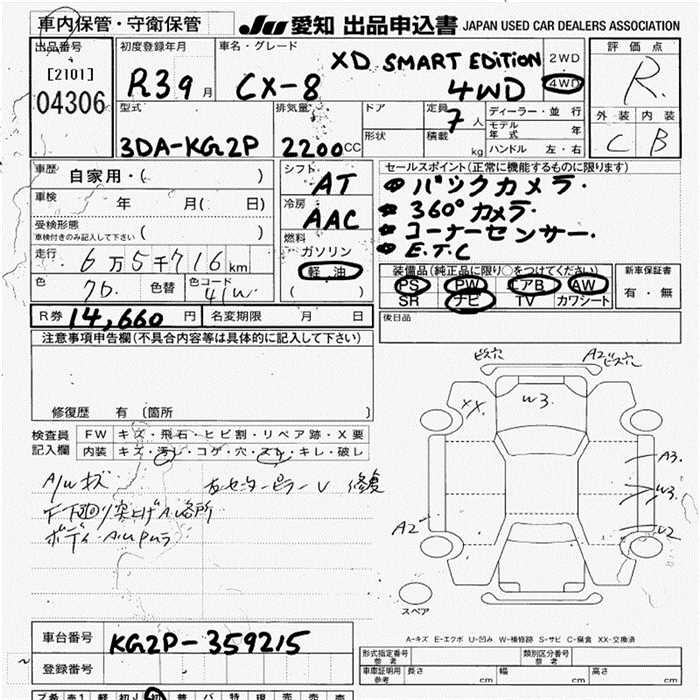 車内保管・守衛保管
JU 愛知 出品申込書 JAPAN USED CAR DEALERS ASSOCIATION
出品番号
[2101]
04306
初度登録年月
R3 9 月
車名・グレード
XD SMART EDiTiON
CX-8 4WD
2WD
4WD
評価点
R
外装 内装
C B
型式
3DA-KG2P
排気量
2200 CC
ドア
形状
定員
7 人
積載 kg
ディーラー・並行
モデル年式 年
ハンドル 左・右
車歴
自家用・( )
車検 年 月( 日)
受検形態
車検付きのみ記入して下さい ( )
走行
6万5千716 km
色
色替
色コード
R券 14,660 円 名変期限 月 日
シフト
AT
冷房
AAC
燃料
ガソリン
軽油
( )
セールスポイント(正常に機能するものに限ります)
バックカメラ.
360°カメラ.
コーナーセンサー.
E.T.C
装備品(純正品に限り○をつけてください)
PS PW エアB AW
SR ナビ TV カワシート
新車保証書
有・無
後日品
注意事項申告欄(不具合内容等は具体的に記入して下さい)
修復歴 有 〔箇所 〕
検査員記入欄
FW キズ・飛石・ヒビ割・リペア跡・X要
内装 キズ・汚レ・コゲ・穴・スレ・キレ・破レ
A/Wキズ 右センターピラーU 修復
ビス穴 A2 ビス穴
XX. W3.
A3.
W3.
A2 U2
スペア
A-キズ E-エクボ U-凹み W-補修跡 S-サビ C-腐食 XX-交換済
車台番号 KG2P-359215
登録番号
形式指定番号 参考
類別区分番号 参考
車庫証明用 参考 長さ cm 幅 cm 高さ cm